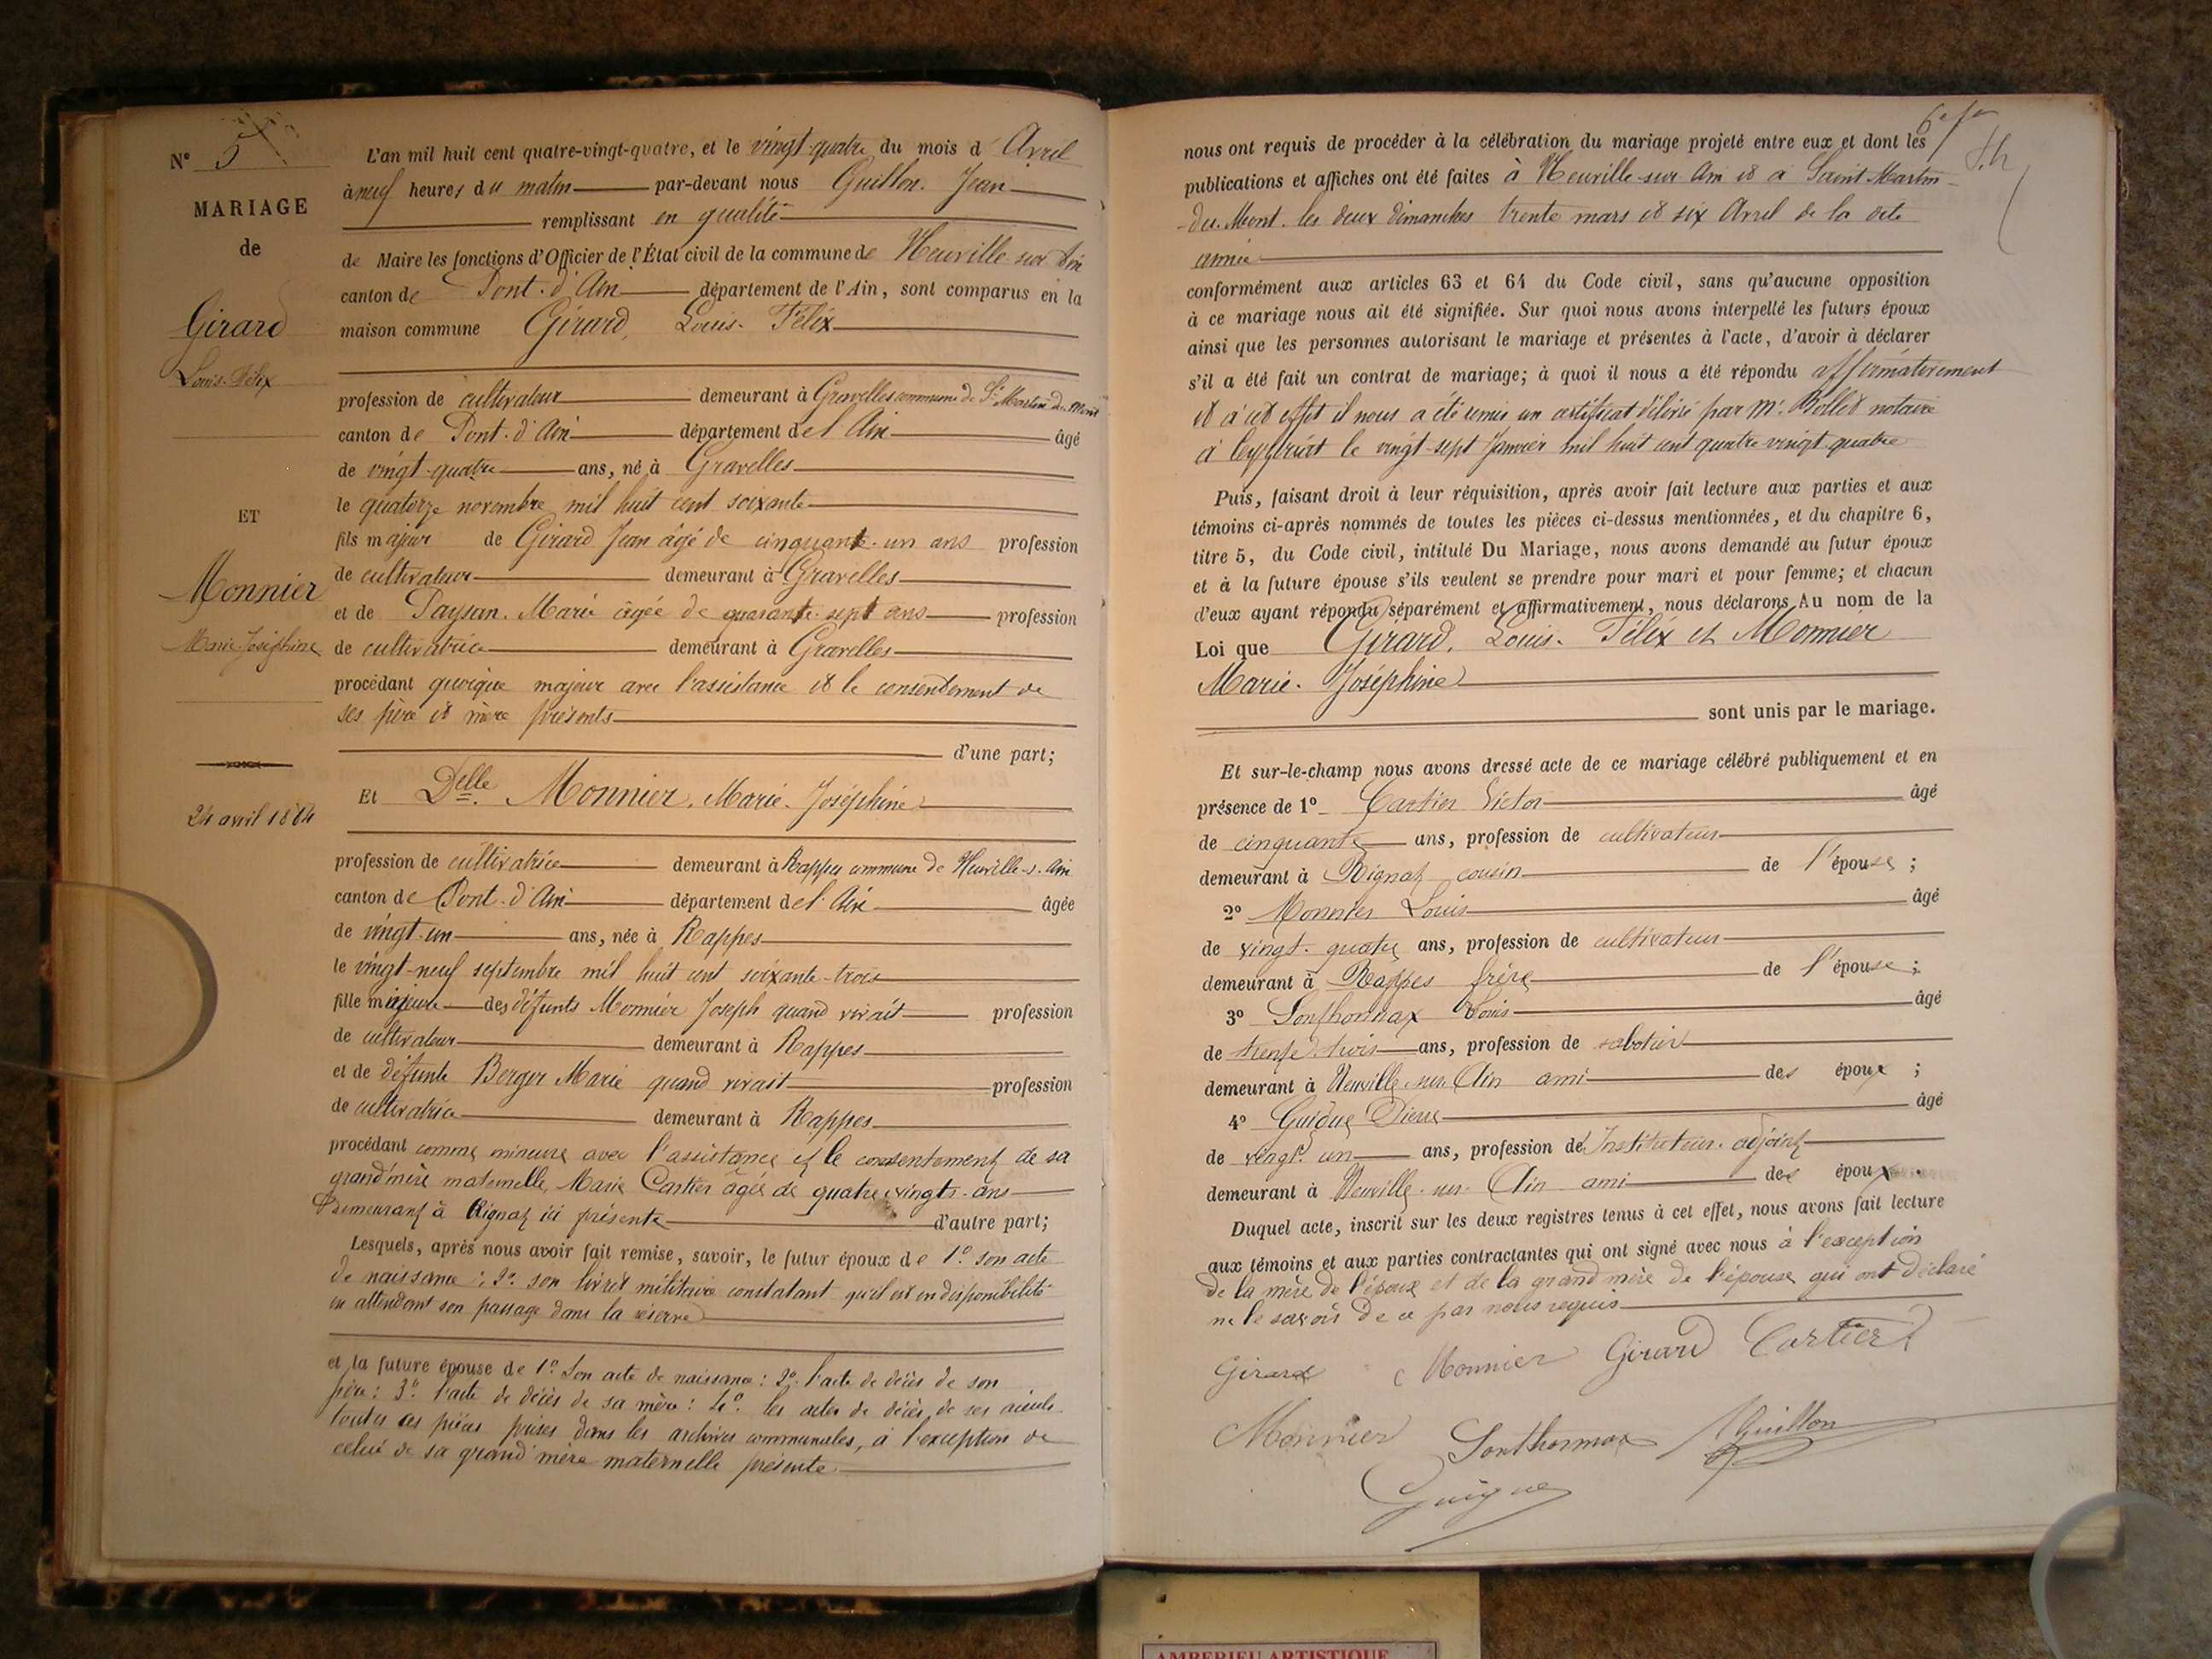 N° 5
MARIAGE
de
Girard
Louis-Félix
ET
Monnier
Marie Joséphine
24 avril 1884
L'an mil huit cent quatre-vingt-quatre, et le vingt-quatre du mois d'Avril
à neuf heures du matin par-devant nous Guillon Jean
remplissant en qualité
de Maire les fonctions d'Officier de l'État civil de la commune de Neuville-sur-Ain
canton de Pont-d'Ain département de l'Ain, sont comparus en la
maison commune Girard, Louis-Félix
profession de cultivateur demeurant à Gravelles commune de St Martin-du-Mont
canton de Pont-d'Ain département de l'Ain âgé
de vingt-quatre ans, né à Gravelles
le quatorze novembre mil huit cent soixante
fils majeur de Girard Jean âgé de cinquante-un ans profession
de cultivateur demeurant à Gravelles
et de Paysan Marie âgée de quarante-sept ans profession
de cultivatrice demeurant à Gravelles
procédant quoique majeur avec l'assistance et le consentement de
ses père et mère présents
d'une part;
Et Delle Monnier, Marie-Joséphine
profession de cultivatrice demeurant à Rappes commune de Neuville-s-Ain
canton de Pont-d'Ain département de l'Ain âgée
de vingt-un ans, née à Rappes
le vingt-neuf septembre mil huit cent soixante-trois
fille mineure des défunts Monnier Joseph quand vivait profession
de cultivateur demeurant à Rappes
et de défunte Berger Marie quand vivait profession
de cultivatrice demeurant à Rappes
procédant comme mineure avec l'assistance et le consentement de sa
grand'mère maternelle, Marie Cartier âgée de quatre vingts ans
Demeurant à Rignat ici présente d'autre part;
Lesquels, après nous avoir fait remise, savoir, le futur époux de 1° son acte
de naissance; 2° son livret militaire constatant qu'il est en disponibilité
en attendant son passage dans la réserve
et la future épouse de 1° Son acte de naissance: 2° l'acte de décès de son
père: 3° l'acte de décès de sa mère: 4° les actes de décès de ses aïeuls
toutes ces pièces puisées dans les archives communales, à l'exception de
celui de sa grand'mère maternelle présente
nous ont requis de procéder à la célébration du mariage projeté entre eux et dont les
publications et affiches ont été faites à Neuville-sur-Ain et à Saint-Martin-
-du-Mont les deux dimanches trente mars et six Avril de la dite
année
conformément aux articles 63 et 64 du Code civil, sans qu'aucune opposition
à ce mariage nous ait été signifiée. Sur quoi nous avons interpellé les futurs époux
ainsi que les personnes autorisant le mariage et présentes à l'acte, d'avoir à déclarer
s'il a été fait un contrat de mariage; à quoi il nous a été répondu affirmativement
et à cet effet il nous a été remis un certificat délivré par Mr. Bollet notaire
à Ceyzériat le vingt-sept Janvier mil huit cent quatre vingt quatre
Puis, faisant droit à leur réquisition, après avoir fait lecture aux parties et aux
témoins ci-après nommés de toutes les pièces ci-dessus mentionnées, et du chapitre 6,
titre 5, du Code civil, intitulé Du Mariage, nous avons demandé au futur époux
et à la future épouse s'ils veulent se prendre pour mari et pour femme; et chacun
d'eux ayant répondu séparément et affirmativement, nous déclarons Au nom de la
Loi que Girard, Louis-Félix et Monnier
Marie-Joséphine
sont unis par le mariage.
Et sur-le-champ nous avons dressé acte de ce mariage célébré publiquement et en
présence de 1° Cartier Victor âgé
de cinquante ans, profession de cultivateur
demeurant à Rignat cousin de l'épouse;
2° Monnier Louis âgé
de vingt-quatre ans, profession de cultivateur
demeurant à Rappes frère de l'épouse;
3° Sonthonnax Louis âgé
de trente-trois ans, profession de sabotier
demeurant à Neuville-sur-Ain ami des époux;
4° Guigue Pierre âgé
de vingt-un ans, profession de Instituteur-adjoint
demeurant à Neuville-sur-Ain ami des époux.
Duquel acte, inscrit sur les deux registres tenus à cet effet, nous avons fait lecture
aux témoins et aux parties contractantes qui ont signé avec nous à l'exception
de la mère de l'époux et de la grand'mère de l'épouse qui ont déclaré
ne le savoir de ce par nous requis
Girard Monnier Girard Cartier
Monnier Sonthonnax JGuillon
Guigue
AMBERIEU ARTISTIQUE